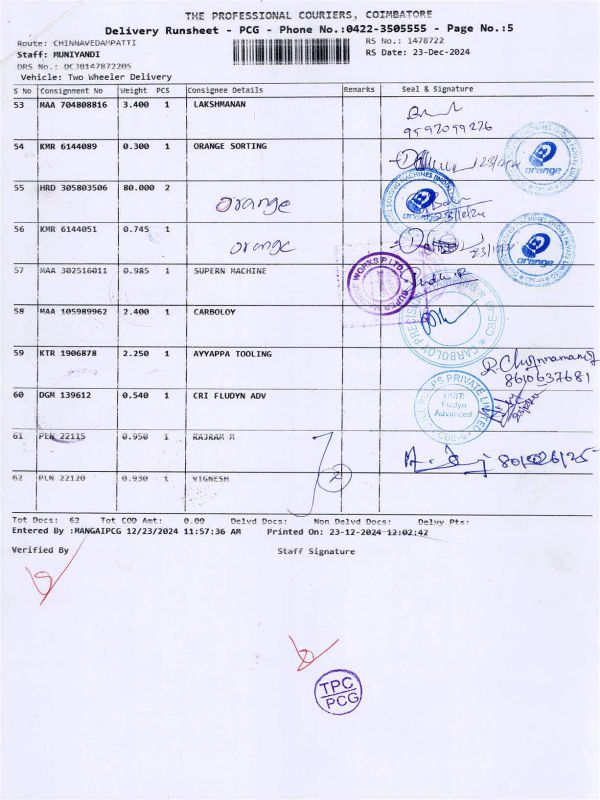 THE PROFESSIONAL COURIERS, COIMBATORE
Delivery Runsheet - PCG - Phone No.:0422-3505555 - Page No.:5
Route: CHINNAVEDAMPATTI RS No.: 1478722
Staff: MUNIYANDI RS Date: 23-Dec-2024
DRS No.: DCJ0147872205
Vehicle: Two Wheeler Delivery
S No Consignment No Weight PCS Consignee Details Remarks Seal & Signature
53 MAA 704808816 3.400 1 LAKSHMANAN
9597099226
54 KMR 6144089 0.300 1 ORANGE SORTING
orange
55 HRD 305803506 80.000 2 orange
orange
56 KMR 6144051 0.745 1 orange
orange
57 MAA 302516011 0.985 1 SUPERN MACHINE
WORKS P.LTD.
58 MAA 105989962 2.400 1 CARBOLOY
59 KTR 1906878 2.250 1 AYYAPPA TOOLING
8610637681
60 DGM 139612 0.540 1 CRI FLUDYN ADV
UNIT:
Fludyn
Advanced
61 PLN 22115 0.950 1 RAJRAM M
62 PLN 22120 0.930 1 VIGNESH
2
Tot Docs: 62 Tot COD Amt: 0.00 Delvd Docs: Non Delvd Docs: Delvy Pts:
Entered By :MANGAIPCG 12/23/2024 11:57:36 AM Printed On: 23-12-2024 12:02:42
Verified By Staff Signature
TPC
PCG